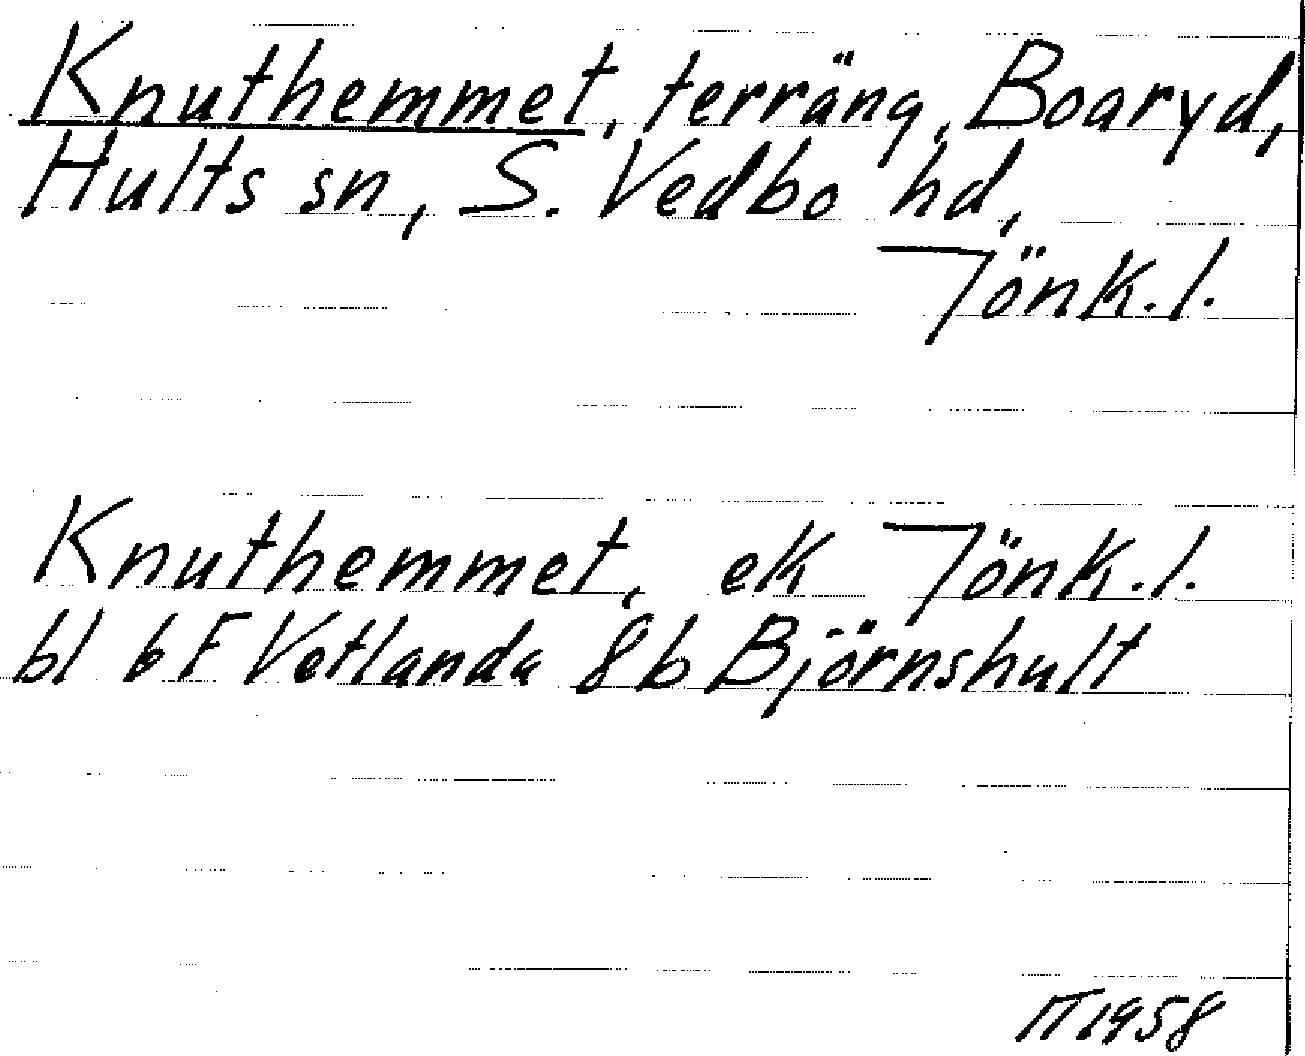 Knuthemmet, terräng, Boaryd,
Hults sn, S. Vedbo hd,
Jönk. l.
Knuthemmet, ek Jönk. l.
bl 6F Vetlanda 8b Björnshult
1958